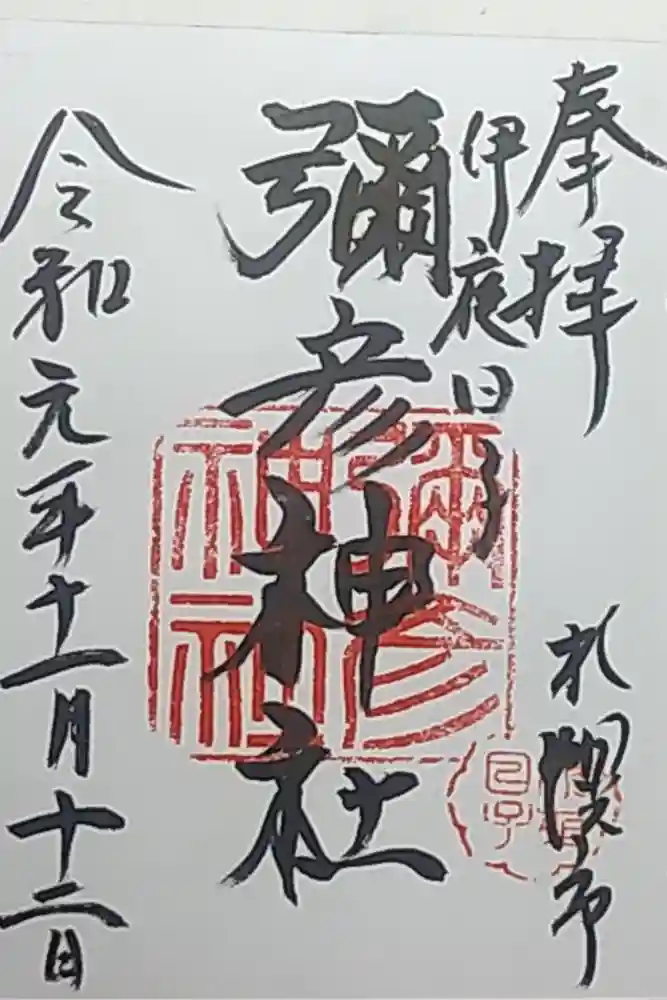 奉拝
札幌市
伊夜日子
彌彦神社
令和元年十一月十二日
彌彦
神社